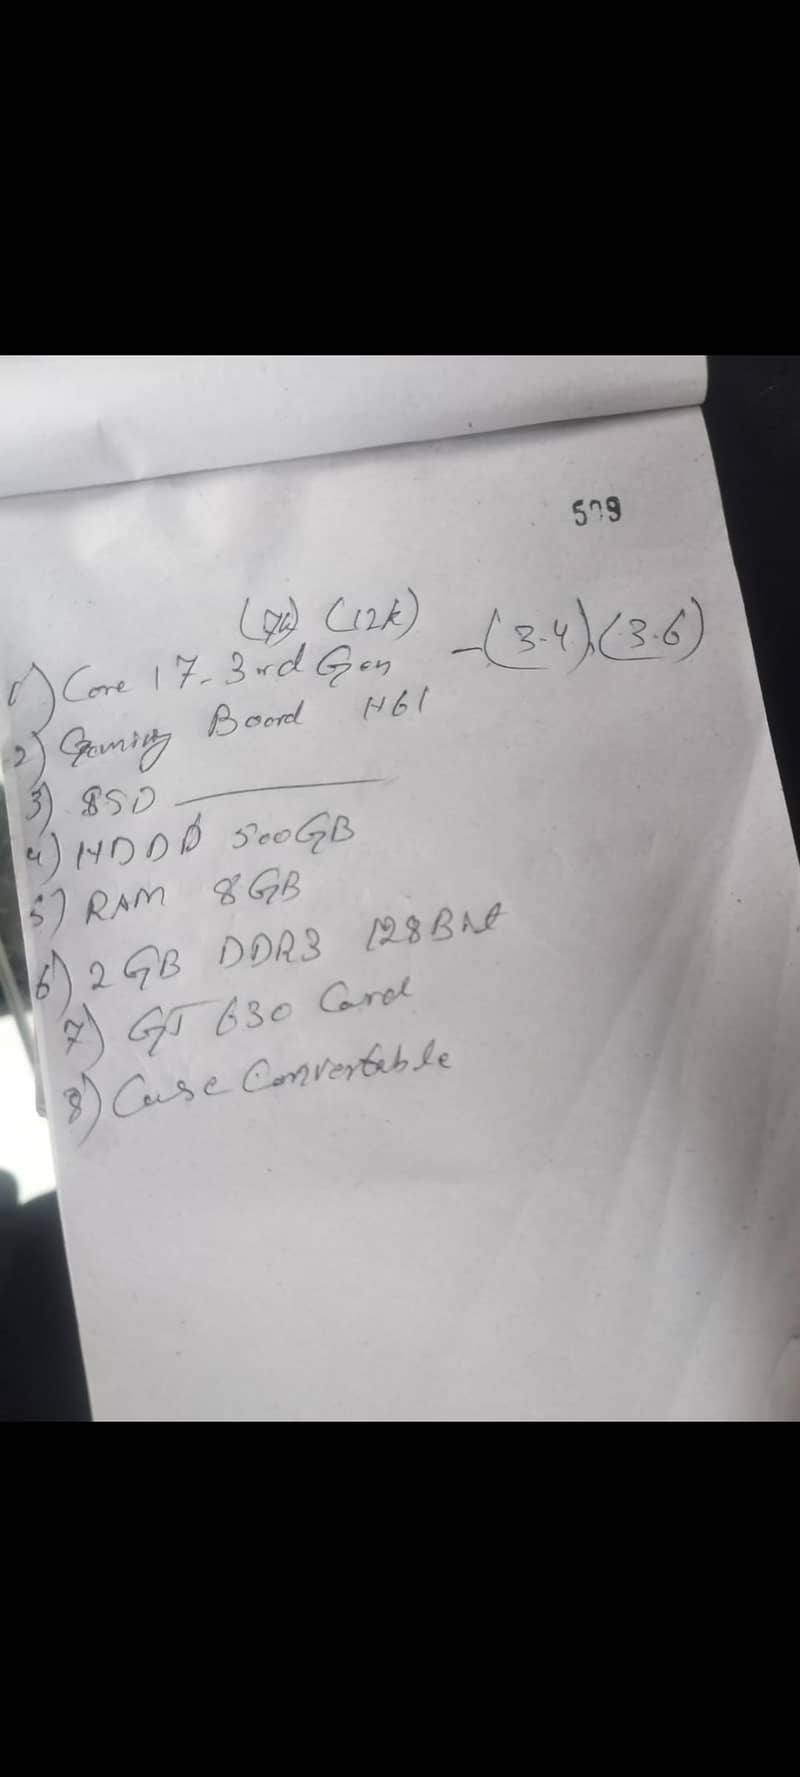 579
(7k) (12k)
1) Core i7-3rd Gen -(3.4),(3.6)
2) Gaming Board H61
3) SSD
4) HDD 500GB
5) RAM 8GB
6) 2GB DDR3 128Bit
7) GT 630 Card
8) Case Convertable